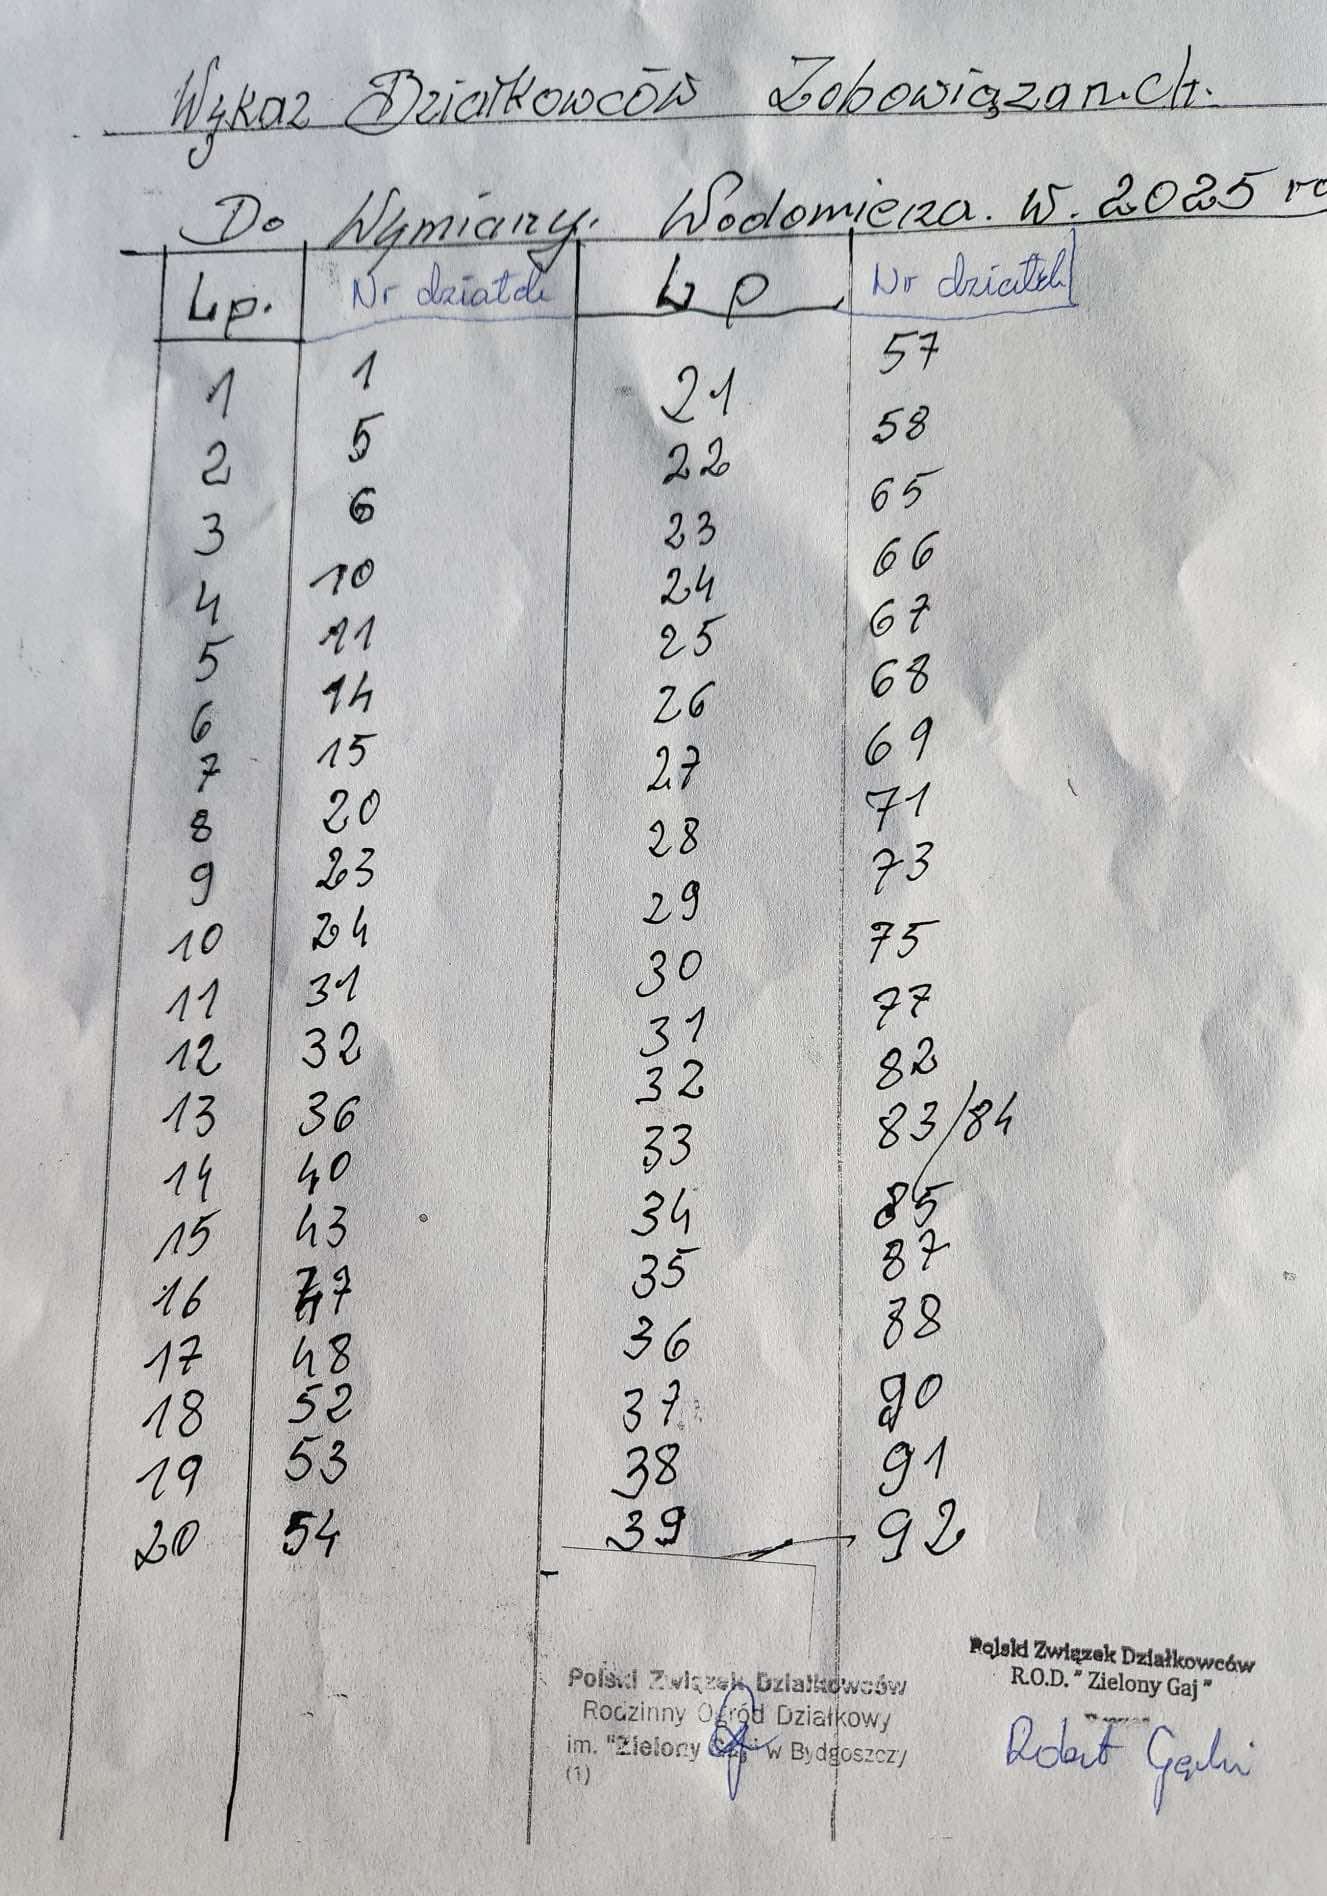 Wykaz Działkowców Zobowiązanych.
Do Wymiany. Wodomierza. W. 2025 ro
Lp. Nr działek Lp Nr działek
1 1 21 57
2 5 22 58
3 6 23 65
4 10 24 66
5 11 25 67
6 14 26 68
7 15 27 69
8 20 28 71
9 23 29 73
10 24 30 75
11 31 31 77
12 32 32 82
13 36 33 83/84
14 40 34 85
15 43 35 87
16 47 36 88
17 48 37 90
18 52 38 91
19 53 39 92
20 54
Polski Związek Działkowców
Rodzinny Ogród Działkowy
im. "Zielony Gaj" w Bydgoszczy
(1)
Polski Związek Działkowców
R.O.D. " Zielony Gaj "
Robert